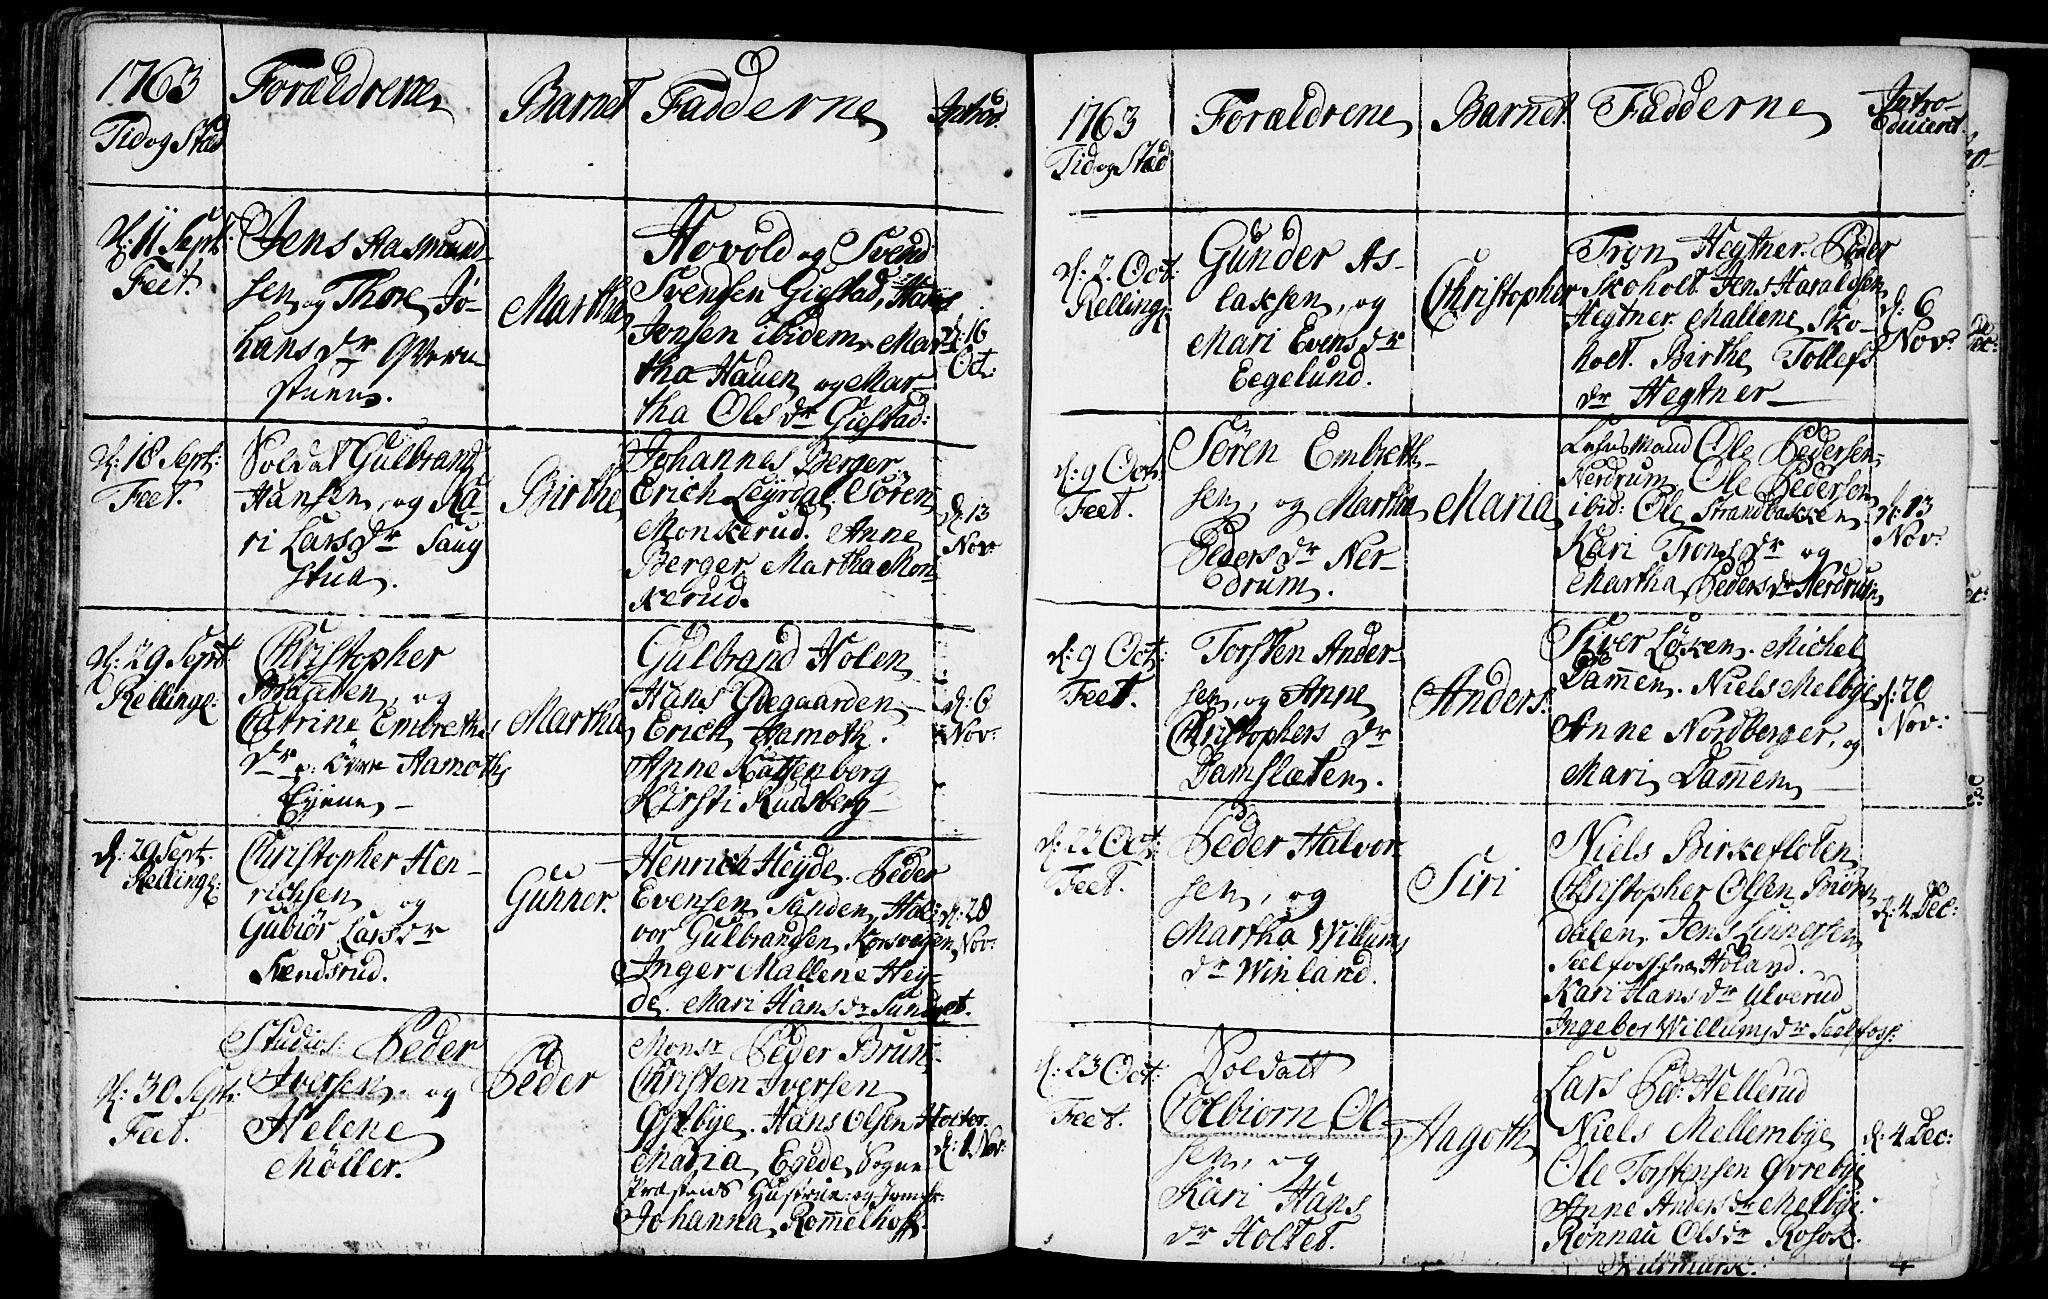 1763
Tid og Stæd
Forældrene
Barnet
Fadderne
Introd:
d: 11 Sept:
Feet.
Jens Aasmund-
sen og Thore Jo-
hans dr Qvern
stuen.
Marthe
Hovold og Svend
Svensen Gigstad, Hans
Jonsen ibidem, Mar
tha Hauen og Mar-
tha Ols dr Gigstad:
d: 16
Oct:
d: 18 Sept:
Feet.
Soldat Gulbrand
Hansen og Ka-
ri Lars dr Saug
stua.
Birthe
Johannes Berger
Erich Leyrdal. Sören
Monkerud. Anne
Berger. Martha Mon
kerud.
d: 13
Nov:
d: 29 Sept
Rellingz
Christopher
Braaten, og
Catrine Embreths
dr p: övre Aamoths
Eyene
Martha
Gulbrand Holen
Hans Ødegaarden
Erich Aamoth.
Anne Kattenberg
Kirsti Rudsberg
d: 6
Nov:
d: 29 Sept.
Rellingz
Christopher Hen-
richsen og
Gubiör Lars dr
Kendsrud.
Gunner.
Henrich Heyde. Peder
Evensen Sanden, Hal-
vor Gulbrandsen Korsvegen
Inger Mallene Hey-
de. Mari Hans dr Sundbyet.
d: 28
Nov:
d: 30 Sept:
Feet.
Studios: Peder
Iversen og
Helene
Möller.
Peder
Monsr Peder Brun
Christen Iversen
Østbye. Hans Olsen Holtor.
Maria Egede Sogne
Præstens Hustrue og Jomfr.
Johanna Rommelhoff.
d: 1 Nov:
1763
Tid og Stæd
Forældrene
Barnet.
Fadderne
Intro-
duceret.
d: 2. Oct:
Rellingz
Gunder As-
laksen, og
Mari Evens dr
Eegelund.
Christopher
Tron Hegtner. Peder
Skoholt. Jens Haraldsen
Hegtner. Mallene Sko-
holt. Birthe Tollefs
dr Hegtner
d: 6
Nov:
d: 9 Oct:
Feet.
Sören Embreth-
sen, og Martha
Peders dr Ner-
drum.
Maria
Lehnsmand Ole Pedersen
Nerdrum. Ole Pedersen
ibid: Ole Strandbakken
Kari Trons dr og
Martha Peders dr Nerdrum
d: 13
Nov:
d: 9 Oct:
Feet.
Torsten Ander-
sen, og Anne
Christophers dr
Damsletten.
Anders.
Siver Løken. Michel
Dammen. Niels Melbye
Anne Nordberger, og
Mari Dammen
d: 20
Nov:
d: 23 Oct:
Feet.
Peder Halvor
sen, og
Martha Willums
dr Winland.
Siri
Niels Birkefloten
Christopher Olsen Biörn
dalen. Jens Linnersen
Seelfoss fra Høland.
Kari Hans dr Ulverud
Ingebor Willums dr Seelfoss:
d: 4 Dec:
d: 23 Oct:
Feet.
Soldatt
Colbiorn Ol-
sen, og
Kari Hans
dr Holtet.
Aagoth
Lars Ped: Hellerud
Niels Mellembye
Ole Torstensen Øvrebye
Anne Anders dr Melbye
Rønnau Ols dr Rosok.
d: 4 Dec: